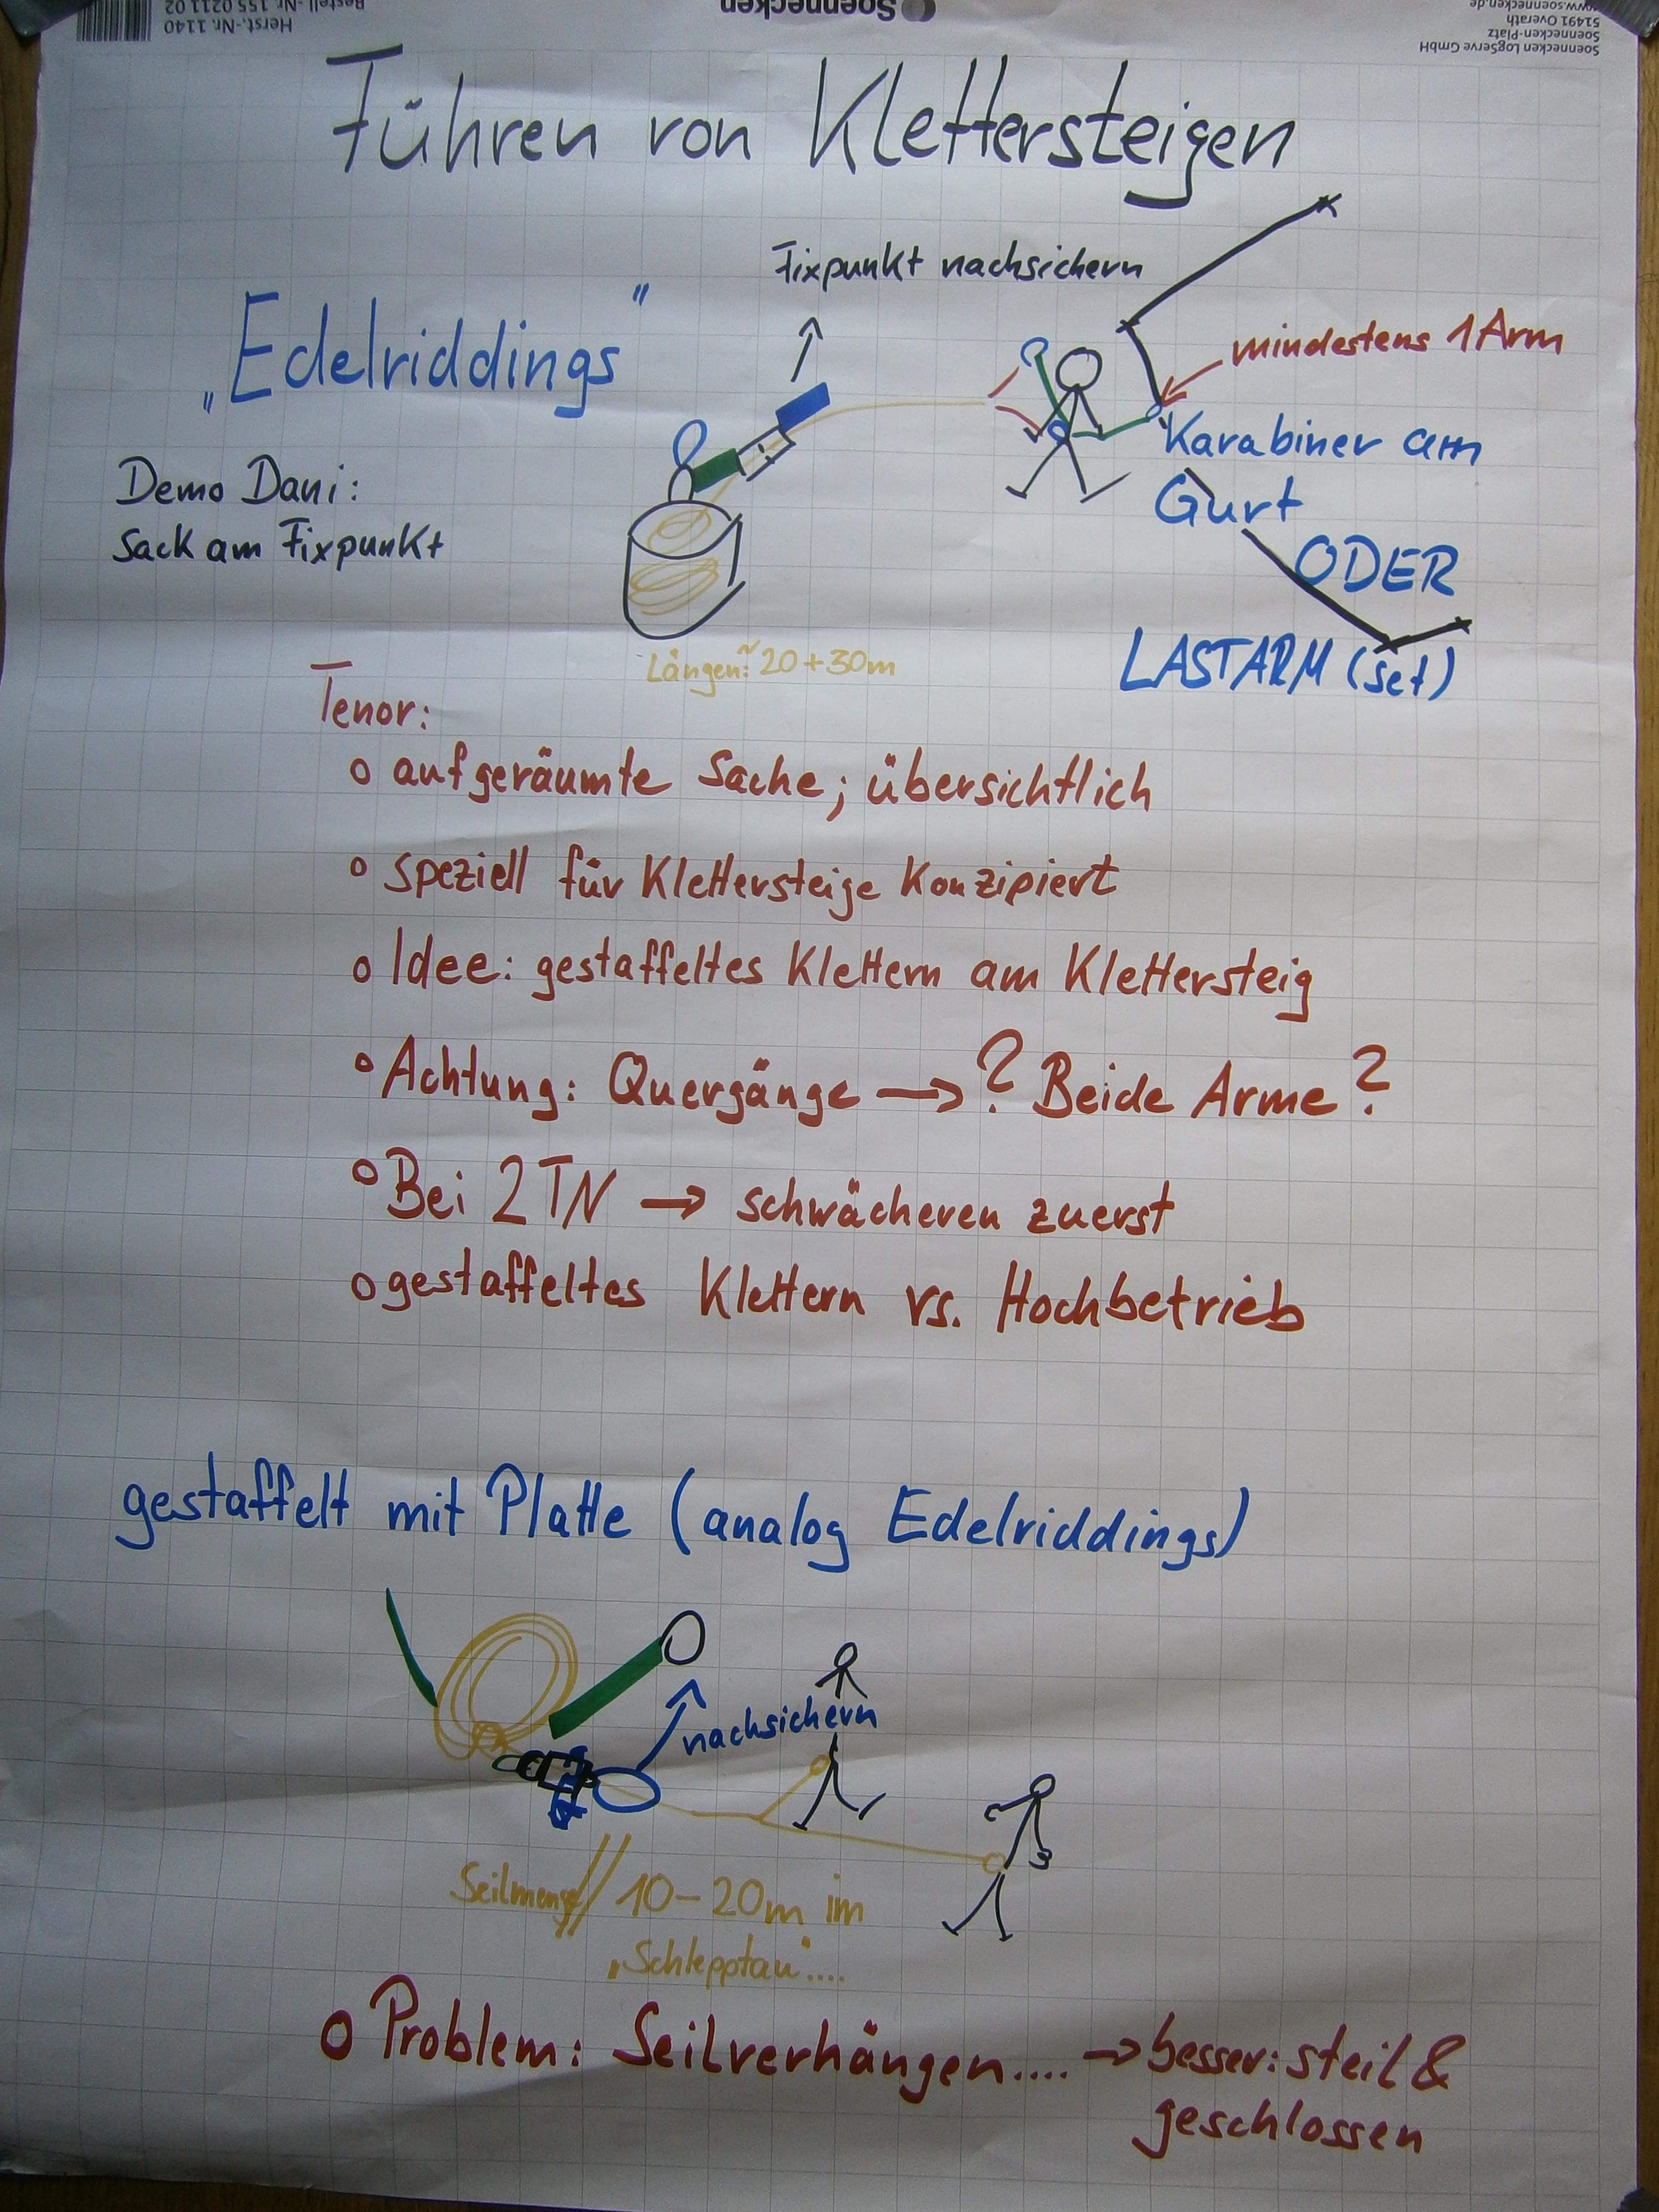 Soennecken
Bestell-Nr. 155 0211 02
Herst.-Nr. 1140
Soennecken LogServe GmbH
Soennecken-Platz
51491 Overath
www.soennecken.de
Führen von Klettersteigen
Fixpunkt nachsichern
„Edelriddings"
mindestens 1 Arm
Karabiner am
Gurt
ODER
LASTARM (Set)
Demo Dani:
Sack am Fixpunkt
Längen: ~20+30m
Tenor:
o aufgeräumte Sache; übersichtlich
o speziell für Klettersteige Konzipiert
o Idee: gestaffeltes Klettern am Klettersteig
o Achtung: Quergänge → ? Beide Arme ?
o Bei 2 TN → schwächeren zuerst
o gestaffeltes Klettern vs. Hochbetrieb
gestaffelt mit Platte (analog Edelriddings)
nachsichern
Seilmenge // 10-20m im
„Schlepptau"....
o Problem: Seilverhängen.... → besser: steil &
geschlossen